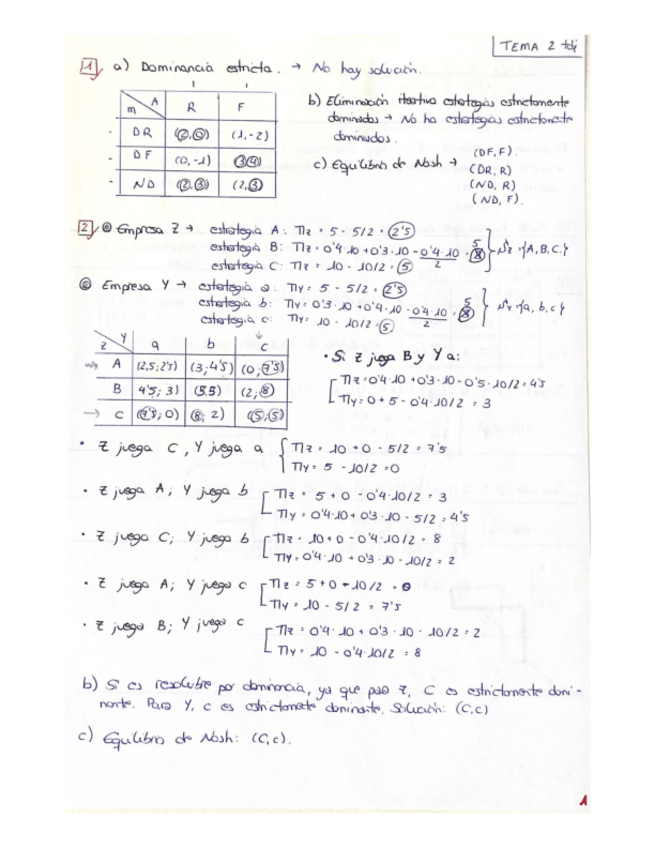 TEMA 2 tdj
1 a) Dominancia estricta. → No hay solución.
m A R F
DR (2,0) (1,-2)
DF (0,-1) (3,4)
ND (2,3) (2,3)
b) Eliminación iterativa estrategias estrictamente
dominadas → No ha estrategias estrictamente
dominadas.
c) Equilibrio de Nash → (DF, F).
(DR, R)
(ND, R)
(ND, F).
2 @ Empresa Z → estrategia A: Πz = 5 - 5/2 = 2'5
estrategia B: Πz = 0'4·10 + 0'3·10 - 0'4·10/2 = 5
estrategia C: Πz = 10 - 10/2 = 5
Sz = {A, B, C}
@ Empresa Y → estrategia a: Πy = 5 - 5/2 = 2'5
estrategia b: Πy = 0'3·10 + 0'4·10 - 0'4·10/2 = 5
estrategia c: Πy = 10 - 10/2 = 5
Sy = {a, b, c}
Z Y a b c
A (2,5; 2'5) (3; 4'5) (0; 7'5)
B 4'5; 3) (5,5) (2; 8)
C (7'5; 0) (8; 2) (5; 5)
• Si Z juega B y Y a:
Πz = 0'4·10 + 0'3·10 - 0'5·10/2 = 4'5
Πy = 0 + 5 - 0'4·10/2 = 3
• Z juega C, Y juega a
Πz = 10 + 0 - 5/2 = 7'5
Πy = 5 - 10/2 = 0
• Z juega A; Y juega b
Πz = 5 + 0 - 0'4·10/2 = 3
Πy = 0'4·10 + 0'3·10 - 5/2 = 4'5
• Z juega C; Y juega b
Πz = 10 + 0 - 0'4·10/2 = 8
Πy = 0'4·10 + 0'3·10 - 10/2 = 2
• Z juega A; Y juega c
Πz = 5 + 0 - 10/2 = 0
Πy = 10 - 5/2 = 7'5
• Z juega B; Y juega c
Πz = 0'4·10 + 0'3·10 - 10/2 = 2
Πy = 10 - 0'4·10/2 = 8
b) Si es resoluble por dominancia, ya que para Z, C es estrictamente domi-
nante. Para Y, c es estrictamente dominante. Solución: (C,c)
c) Equilibrio de Nash: (C,c).
1